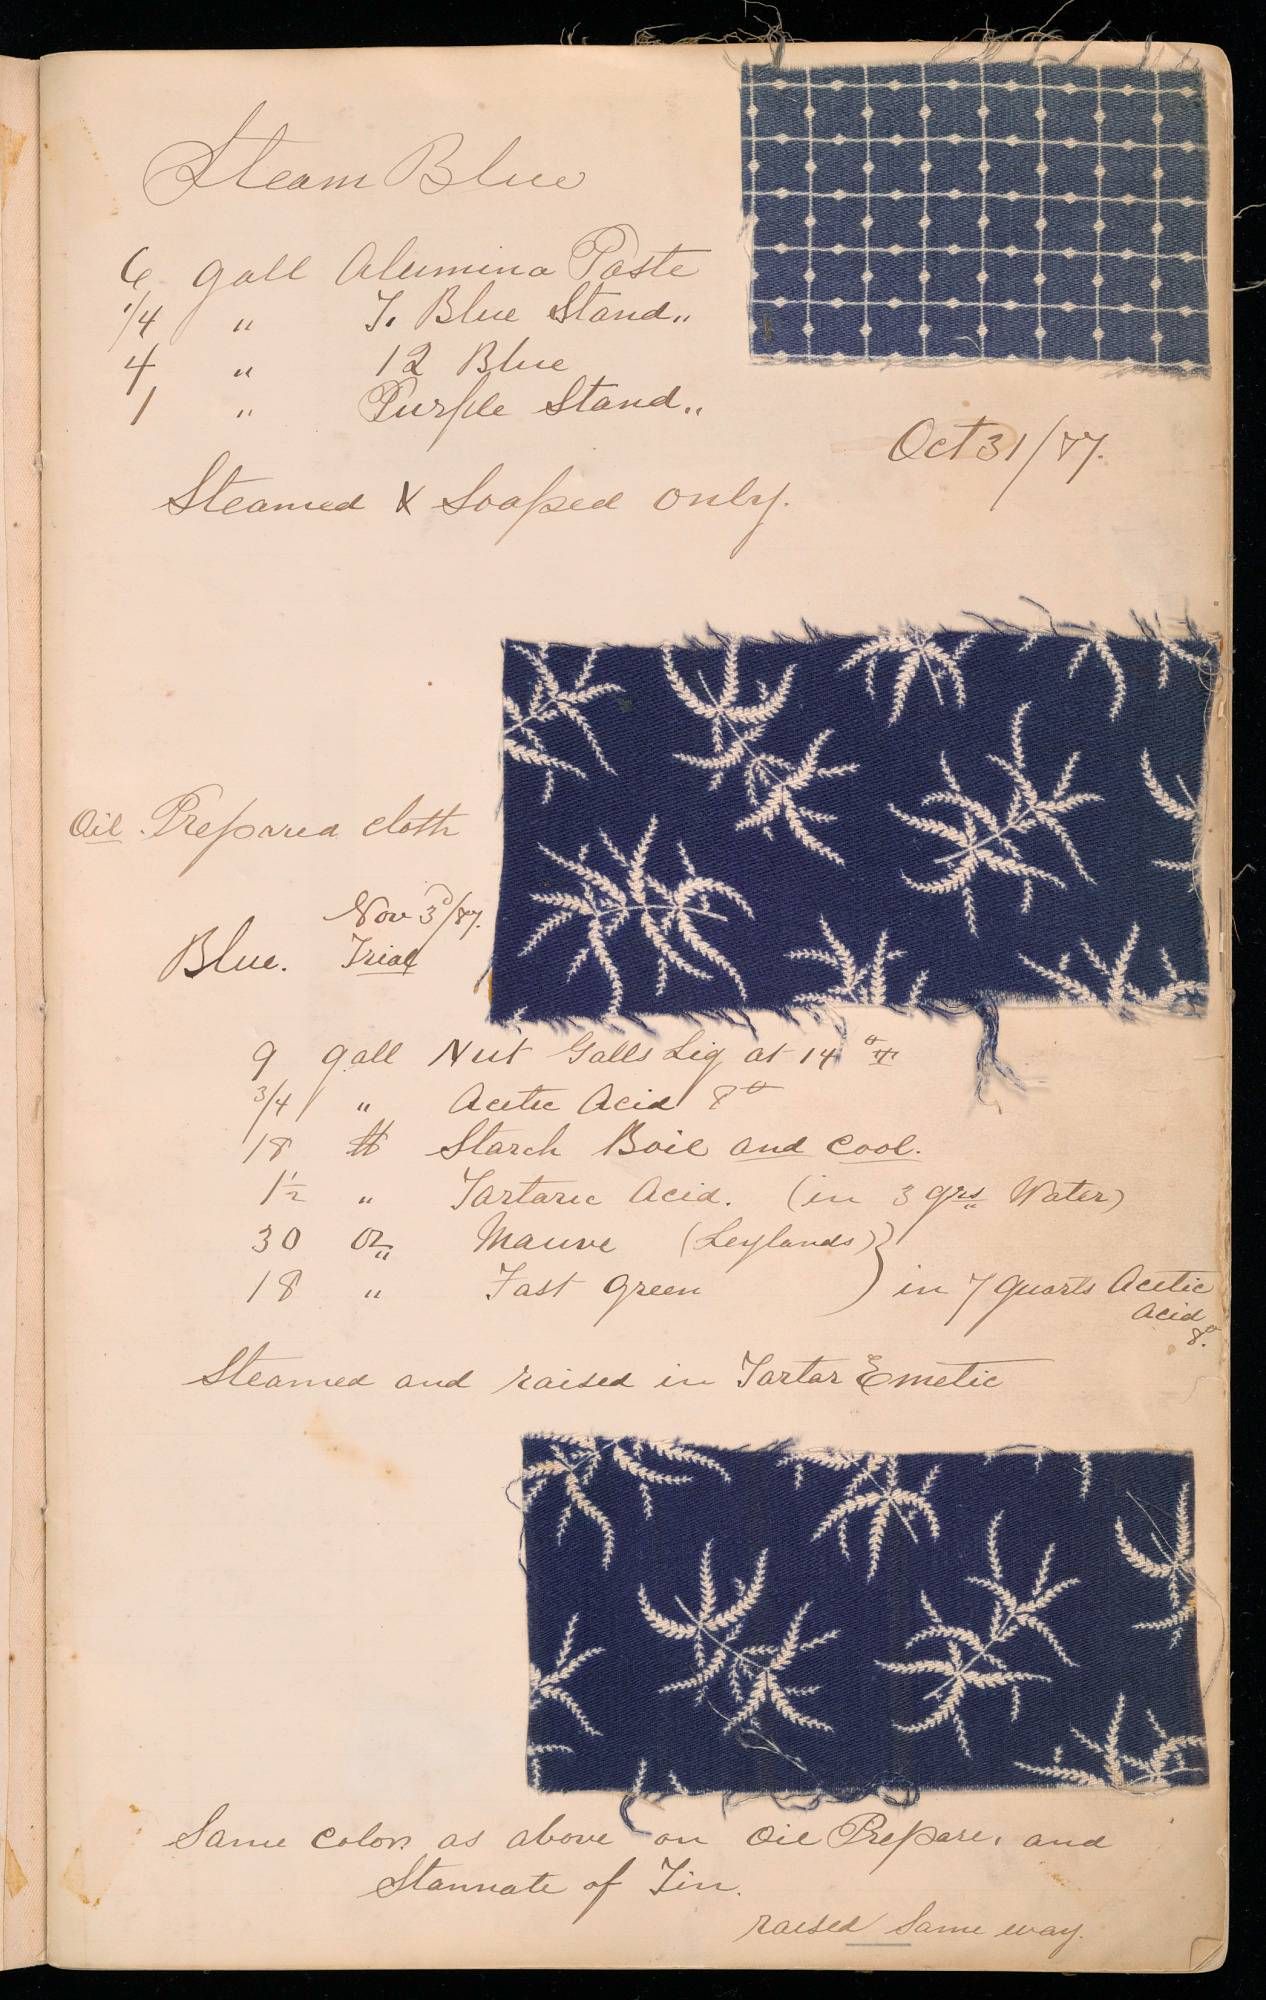 Steam Blue
6 gall Alumina Paste
1/4 " T. Blue Stand,,
4 " 12 Blue
1 " Purple Stand,,
Oct 31/87.
Steamed & Soaped only.
Oil Prepared cloth
Nov 3d/87.
Blue. Trial
9 gall Nut Galls Liq at 14° T
3/4 " Acetic Acid 8°
18 # Starch Boil and cool.
1½ " Tartaric Acid. (in 3 qrs Water)
30 oz,, Mauve (Leylands)
18 " Fast Green } in 7 quarts Acetic
Acid
8°.
Steamed and raised in Tartar Emetic
Same color as above on Oil Prepare, and
Stannate of Tin.
raised same way.